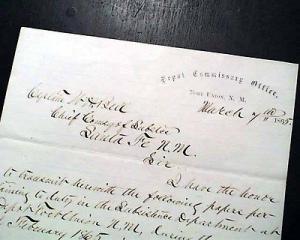 Depot Commissary Office,
Fort Union, N. M.
March 7th 1865
Captain W. H. Bell
Chief Comsy of Subsistce
Santa Fe N.M.
Sir
I have the honor
to transmit herewith the following papers per
taining to duty in the Subsistence Department at
Depot Fort Union N.M. during
February 1865